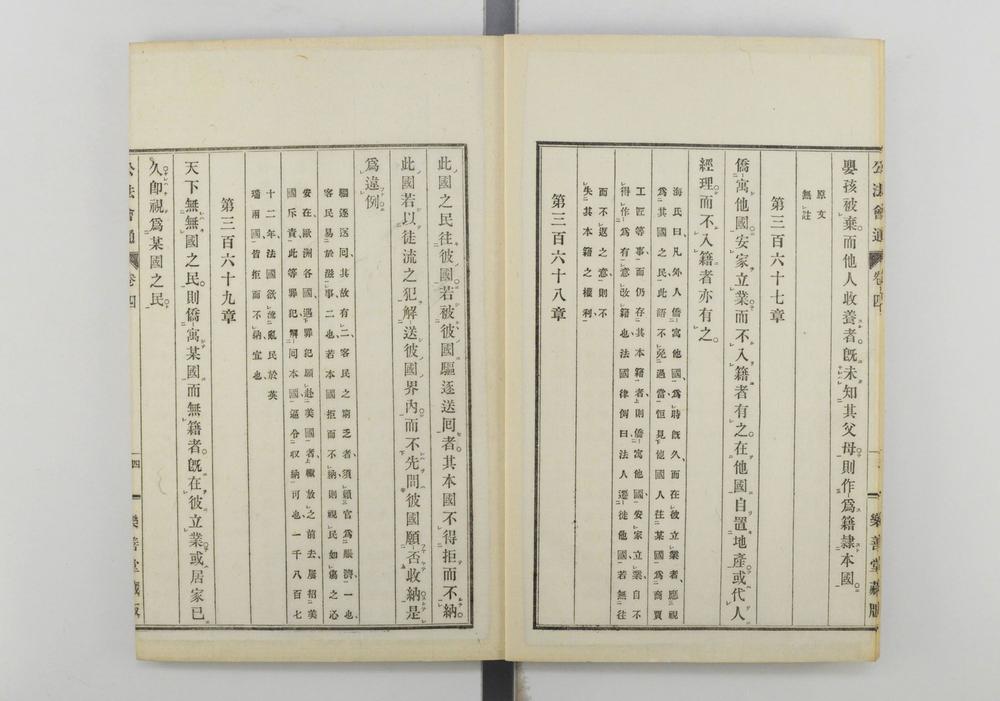 公法會通 卷四 樂善堂藏版
嬰孩被棄而他人收養者。旣未知其父母。則作爲籍隸本國。
原文
無註
第三百六十七章
僑寓他國。安家立業。而不入籍者有之。在他國自置地產。或代人
經理而不入籍者亦有之。
海氏曰凡外人僑寓他國、爲時旣久、而在彼立業者、應視
爲其國之民、此語不免過當、恒見他國人在某國爲商賈
工匠等事、而仍存其本籍者、則僑寓他國、安家立業、自不
得作爲有意改籍也、法國律例曰、法人遷徙他國、若無往
而不返之意、則不
失其本籍之權利、
第三百六十八章
此國之民往彼國。若被彼國驅逐送回者。其本國不得拒而不納。
此國若以徒流之犯。解送彼國界內。而不先問彼國願否收納。是
爲違例
驅逐送回、其故有二、客民之窮乏者、須顧官爲賑濟、一也、
客民易於滋事、二也、若本國拒而不納、則視民如傷之心
安在、歐洲各國、遇罪犯願赴美國者、輒放之前去、屢招美
國斥責、此等罪犯、解回本國、逼令收納可也、一千八百七
十二年、法國欲流亂民於英
瑞兩國、皆拒而不納宜也、
第三百六十九章
天下無無國之民。則僑寓某國而無籍者。旣在彼立業。或居家已
久。卽視爲某國之民。
公法會通 卷四 四 樂善堂藏版